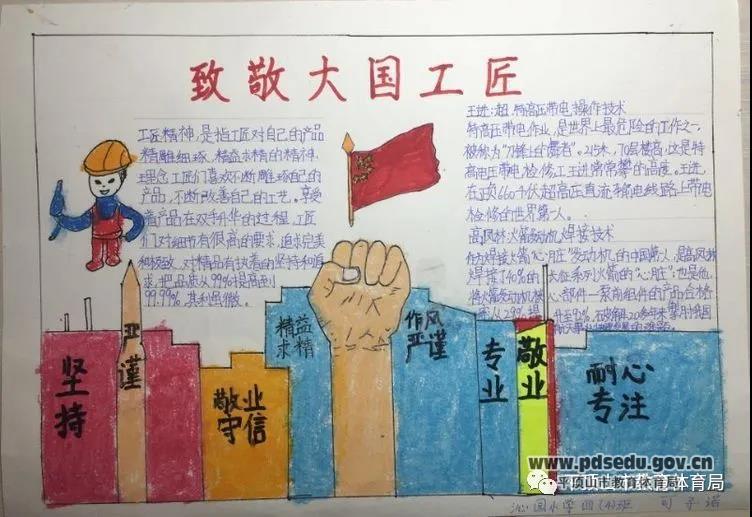 致敬大国工匠
工匠精神,是指工匠对自己的产品
精雕细琢,精益求精的精神
理念工匠们喜欢不断雕琢自己的
产品,不断改善自己的工艺。享受
着产品在双手升华的过程,工匠
们对细节有很高的要求,追求完美
和极致,对精品有执着的坚持和追
求,把品质从99%提高到
99.99%,其利虽微。
王进:超、特高压带电操作技术
特高压带电作业,是世界上最危险的工作之一,
被称为"刀锋上的舞者"。215米,70层楼高,这是特
高压电检修工王进常常攀的高度。王进
在正负660千伏超高压直流输电线路上带电
检修的世界第一人。
高凤林火箭发动机焊接技术
作为焊接火箭"心脏"发动机的中国第一人,提高凤林
焊接了40%的大征系列火箭的"心脏"也是他,
将火箭发动机核心部件一泵前组件的产品合格
率从29%
20多年来
坚持
严谨
敬业
守信
精益
求精
作风
严谨
专业
敬业
耐心
专注
www.pdsedu.gov.cn
平顶山市教育体育局
体育局
沁园小学四(4)班